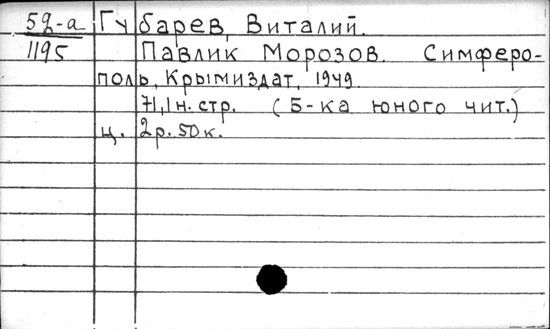 59-а Губарев, Виталий.
1195 Павлик Морозов. Симферо-
поль, Крымиздат, 1949.
71, 1 н. стр. (Б-ка юного чит.)
ц. 2р. 50к.